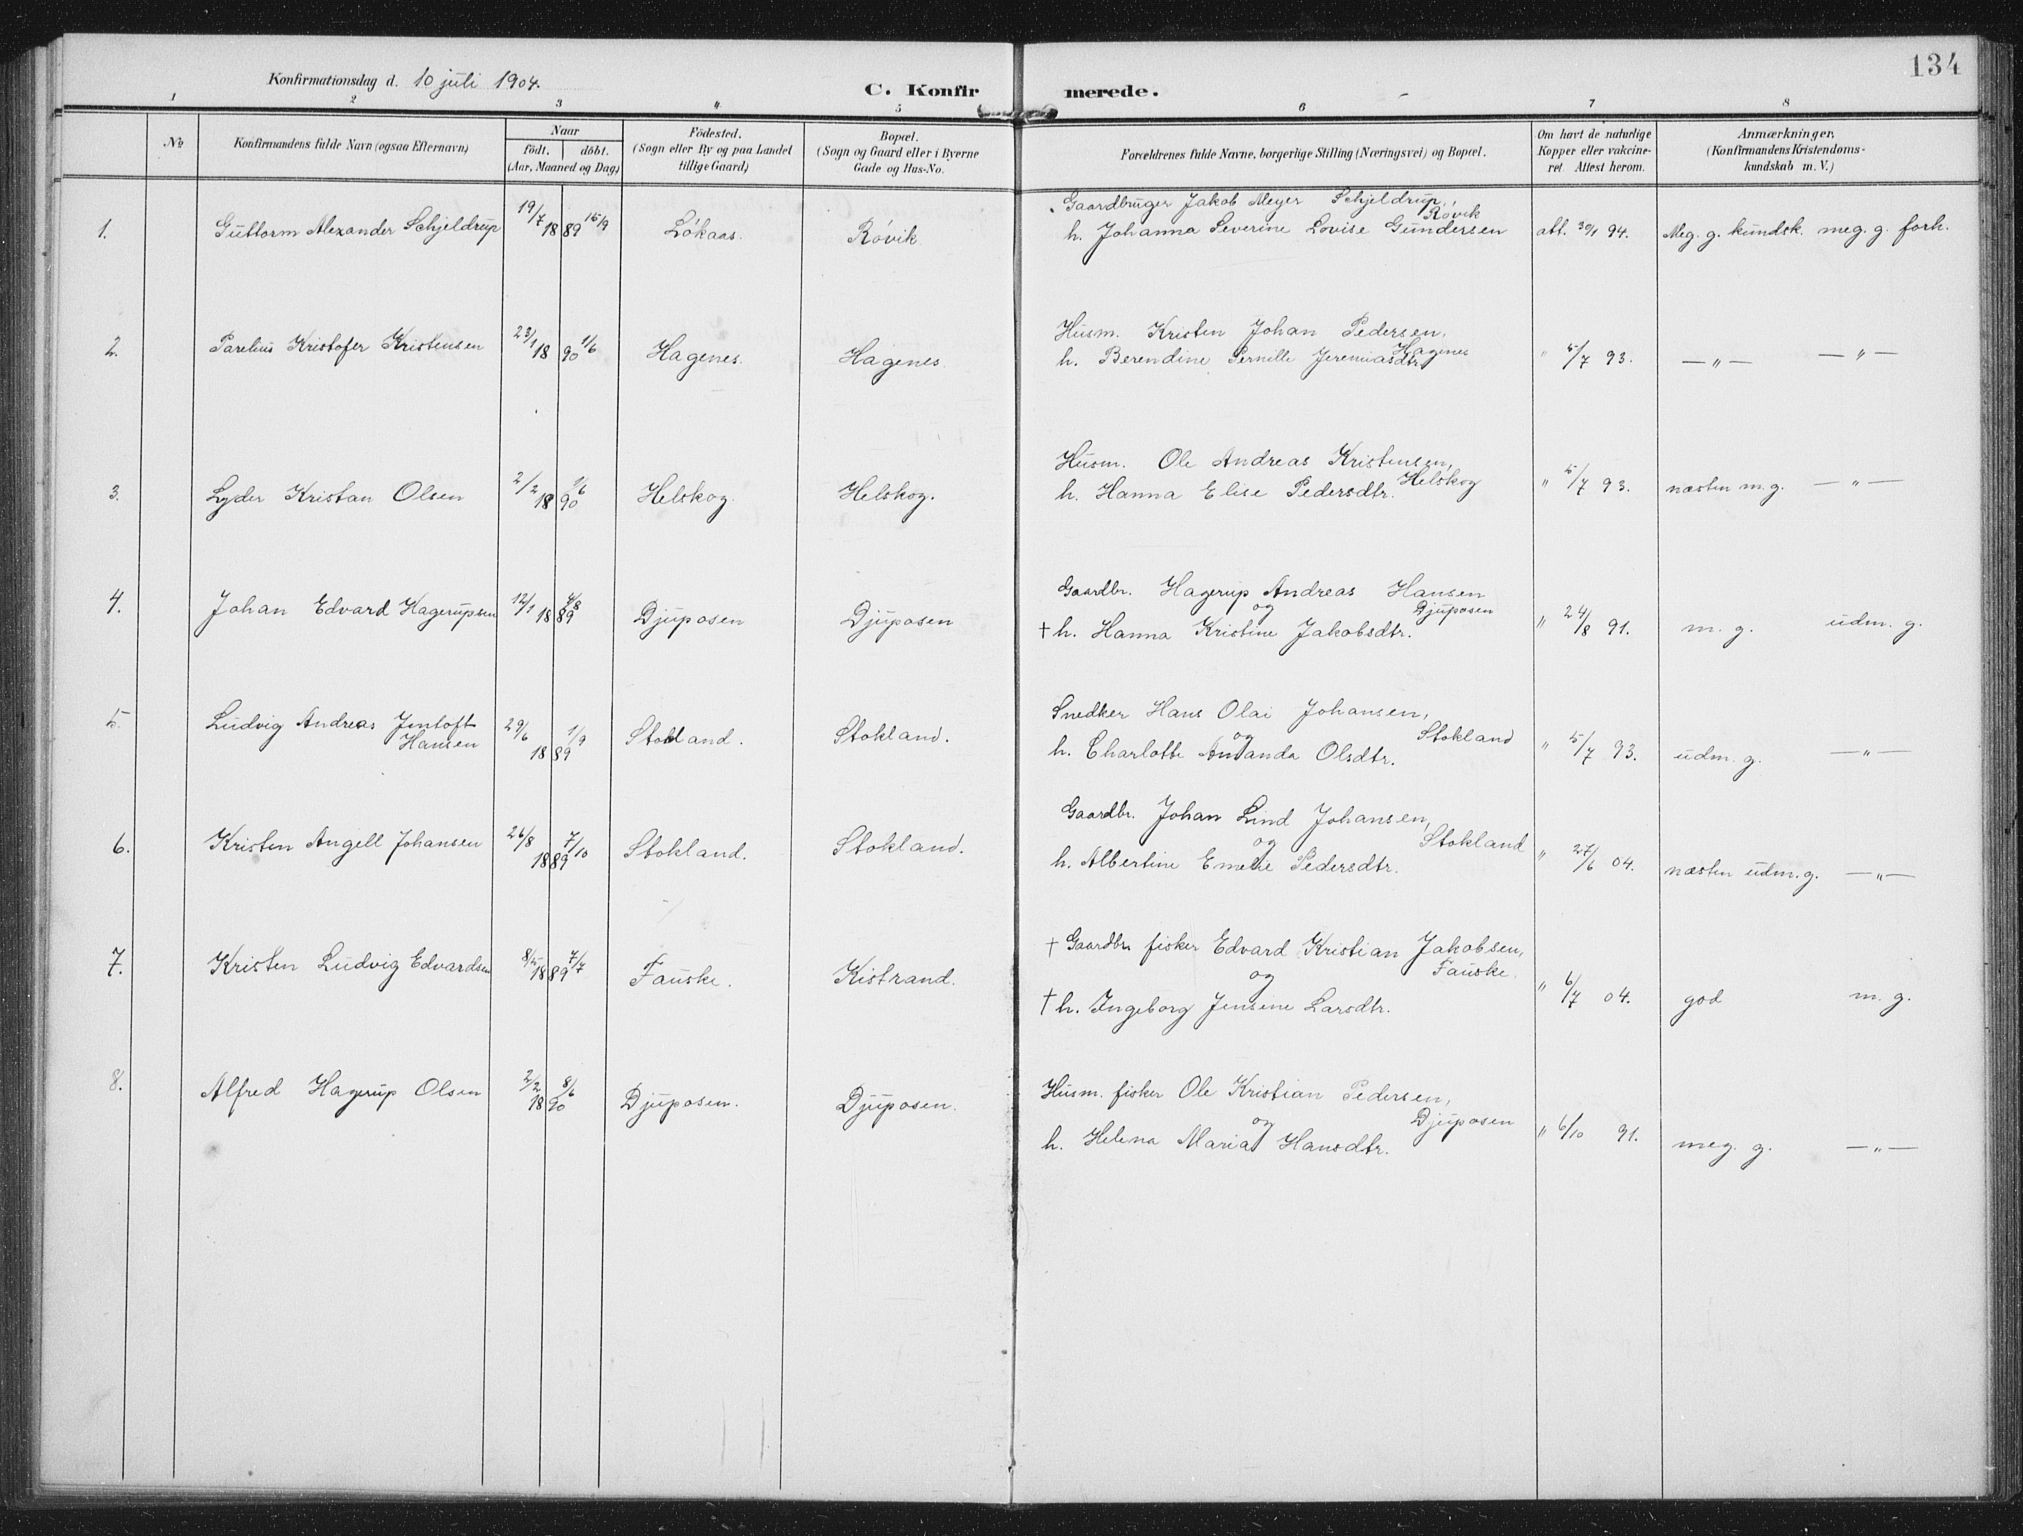 134
Konfirmationsdag d. 10 juli 1904.
C. Konfirmerede.
1 2 3 4 5 6 7 8
No
Konfirmandens fulde Navn (ogsaa Efternavn)
Naar
födt. döbt.
(Aar, Maaned og Dag)
Födested.
(Sogn eller By og paa Landet
tillige Gaard)
Bopæl.
(Sogn og Gaard eller i Byerne
Gade og Hus-No.
Forældrenes fulde Navne, borgerlige Stilling (Næringsvei) og Bopæl.
Om havt de naturlige
Kopper eller vakcine-
ret. Attest herom.
Anmærkninger.
(Konfirmandens Kristendoms-
kundskab m. V.)
Gaardbruger Jakob Meyer Schjeldrup,
Røvik
1. Guttorm Alexander Schjeldrup 19/7 1889 15/9 Løkaas. Røvik h. Johanna Severine Lovise Gundersen att. 30/1 94. Meg. g. kundsk. meg. g. forh.
Husm. Kristen Johan Pedersen,
Hagenes
2. Parelius Kristofer Kristensen 23/1 1890 1/6 Hagenes. Hagenes h. Berendine Pernille Jeremiasdtr. " 5/7 93. —"— —"—
Husm. Ole Andreas Kristensen,
Helskog
3. Lyder Kristan Olsen 2/2 1890 1/6 Helskog. Helskog. h. Hanna Elise Pedersdtr. " 5/7 93. næsten m.g. —"—
Gaardbr. Hagerup Andreas Hansen
og Djuposen
4. Johan Edvard Hagerupsen 12/1 1889 4/8 Djuposen Djuposen † h. Hanna Kristine Jakobsdtr. " 24/8 91. m. g. udm. g.
Snedker Hans Olai Johansen,
og Stokland
5. Ludvig Andreas Jentoft
Hansen 29/6 1889 1/9 Stokland. Stokland. h. Charlotte Amanda Olsdtr. " 5/7 93. udm. g. —"—
Gaardbr. Johan Lind Johansen,
og Stokland
6. Kristen Angell Johansen 26/8 1889 7/10 Stokland. Stokland. h. Albertine Emelie Pedersdtr. " 27/6 04. næsten udm. g. —"—
† Gaardbr. fisker Edvard Kristian Jakobsen,
og Fauske.
7. Kristen Ludvig Edvardsen 8/5 1889 7/7 Fauske. Kistrand. † h. Ingeborg Jensine Larsdtr. " 6/7 04. god m. g.
Husm. fisker Ole Kristian Pedersen,
og Djuposen
8. Alfred Hagerup Olsen 2/2 1890 8/6 Djuposen. Djuposen. h. Helena Maria Hansdtr. " 6/10 91. meg. g. —"—